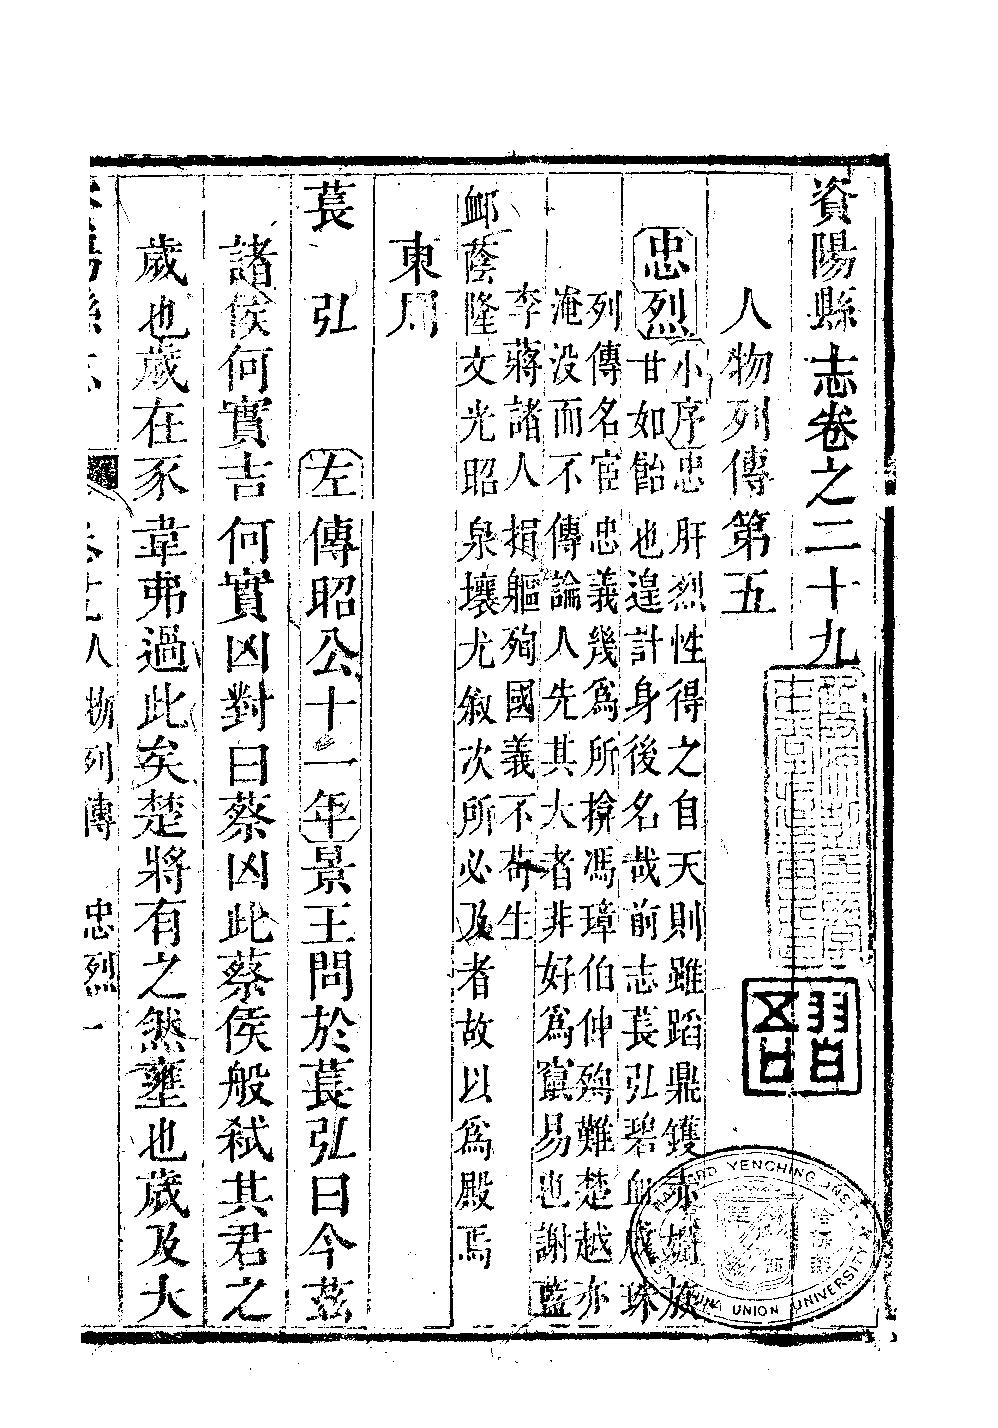 資陽縣志卷之二十九
人物列傳第五
忠烈
小序忠肝烈性得之自天則雖蹈鼎鑊赤族
甘如飴也遑計身後名哉前志萇弘碧血成珠
列傳名宦忠義幾爲所揜馮璋伯仲殉難楚越亦
淹没而不傳論人先其大者非好爲竄易也謝藍
李蔣諸人捐軀殉國義不苟生
卹蔭隆文光昭泉壤尤敘次所必及者故以爲殿焉
東周
萇弘 左傳昭公十一年景王問於萇弘曰今茲
諸侯何實吉何實凶對曰蔡凶此蔡侯般弒其君之
歲也歲在豕韋弗過此矣楚將有之然壅也歲及大
人物列傳 忠烈 一
YENCHING INS
UNION UNIVERSITY